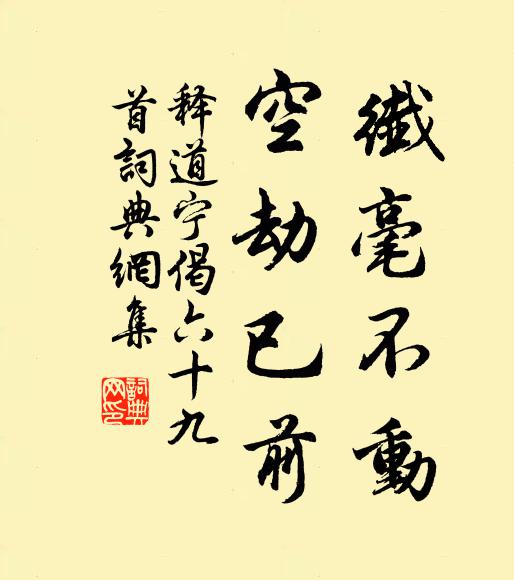 纖毫不動
空劫已前
释道宁偈六十九
首詞典網集
詞典
网印